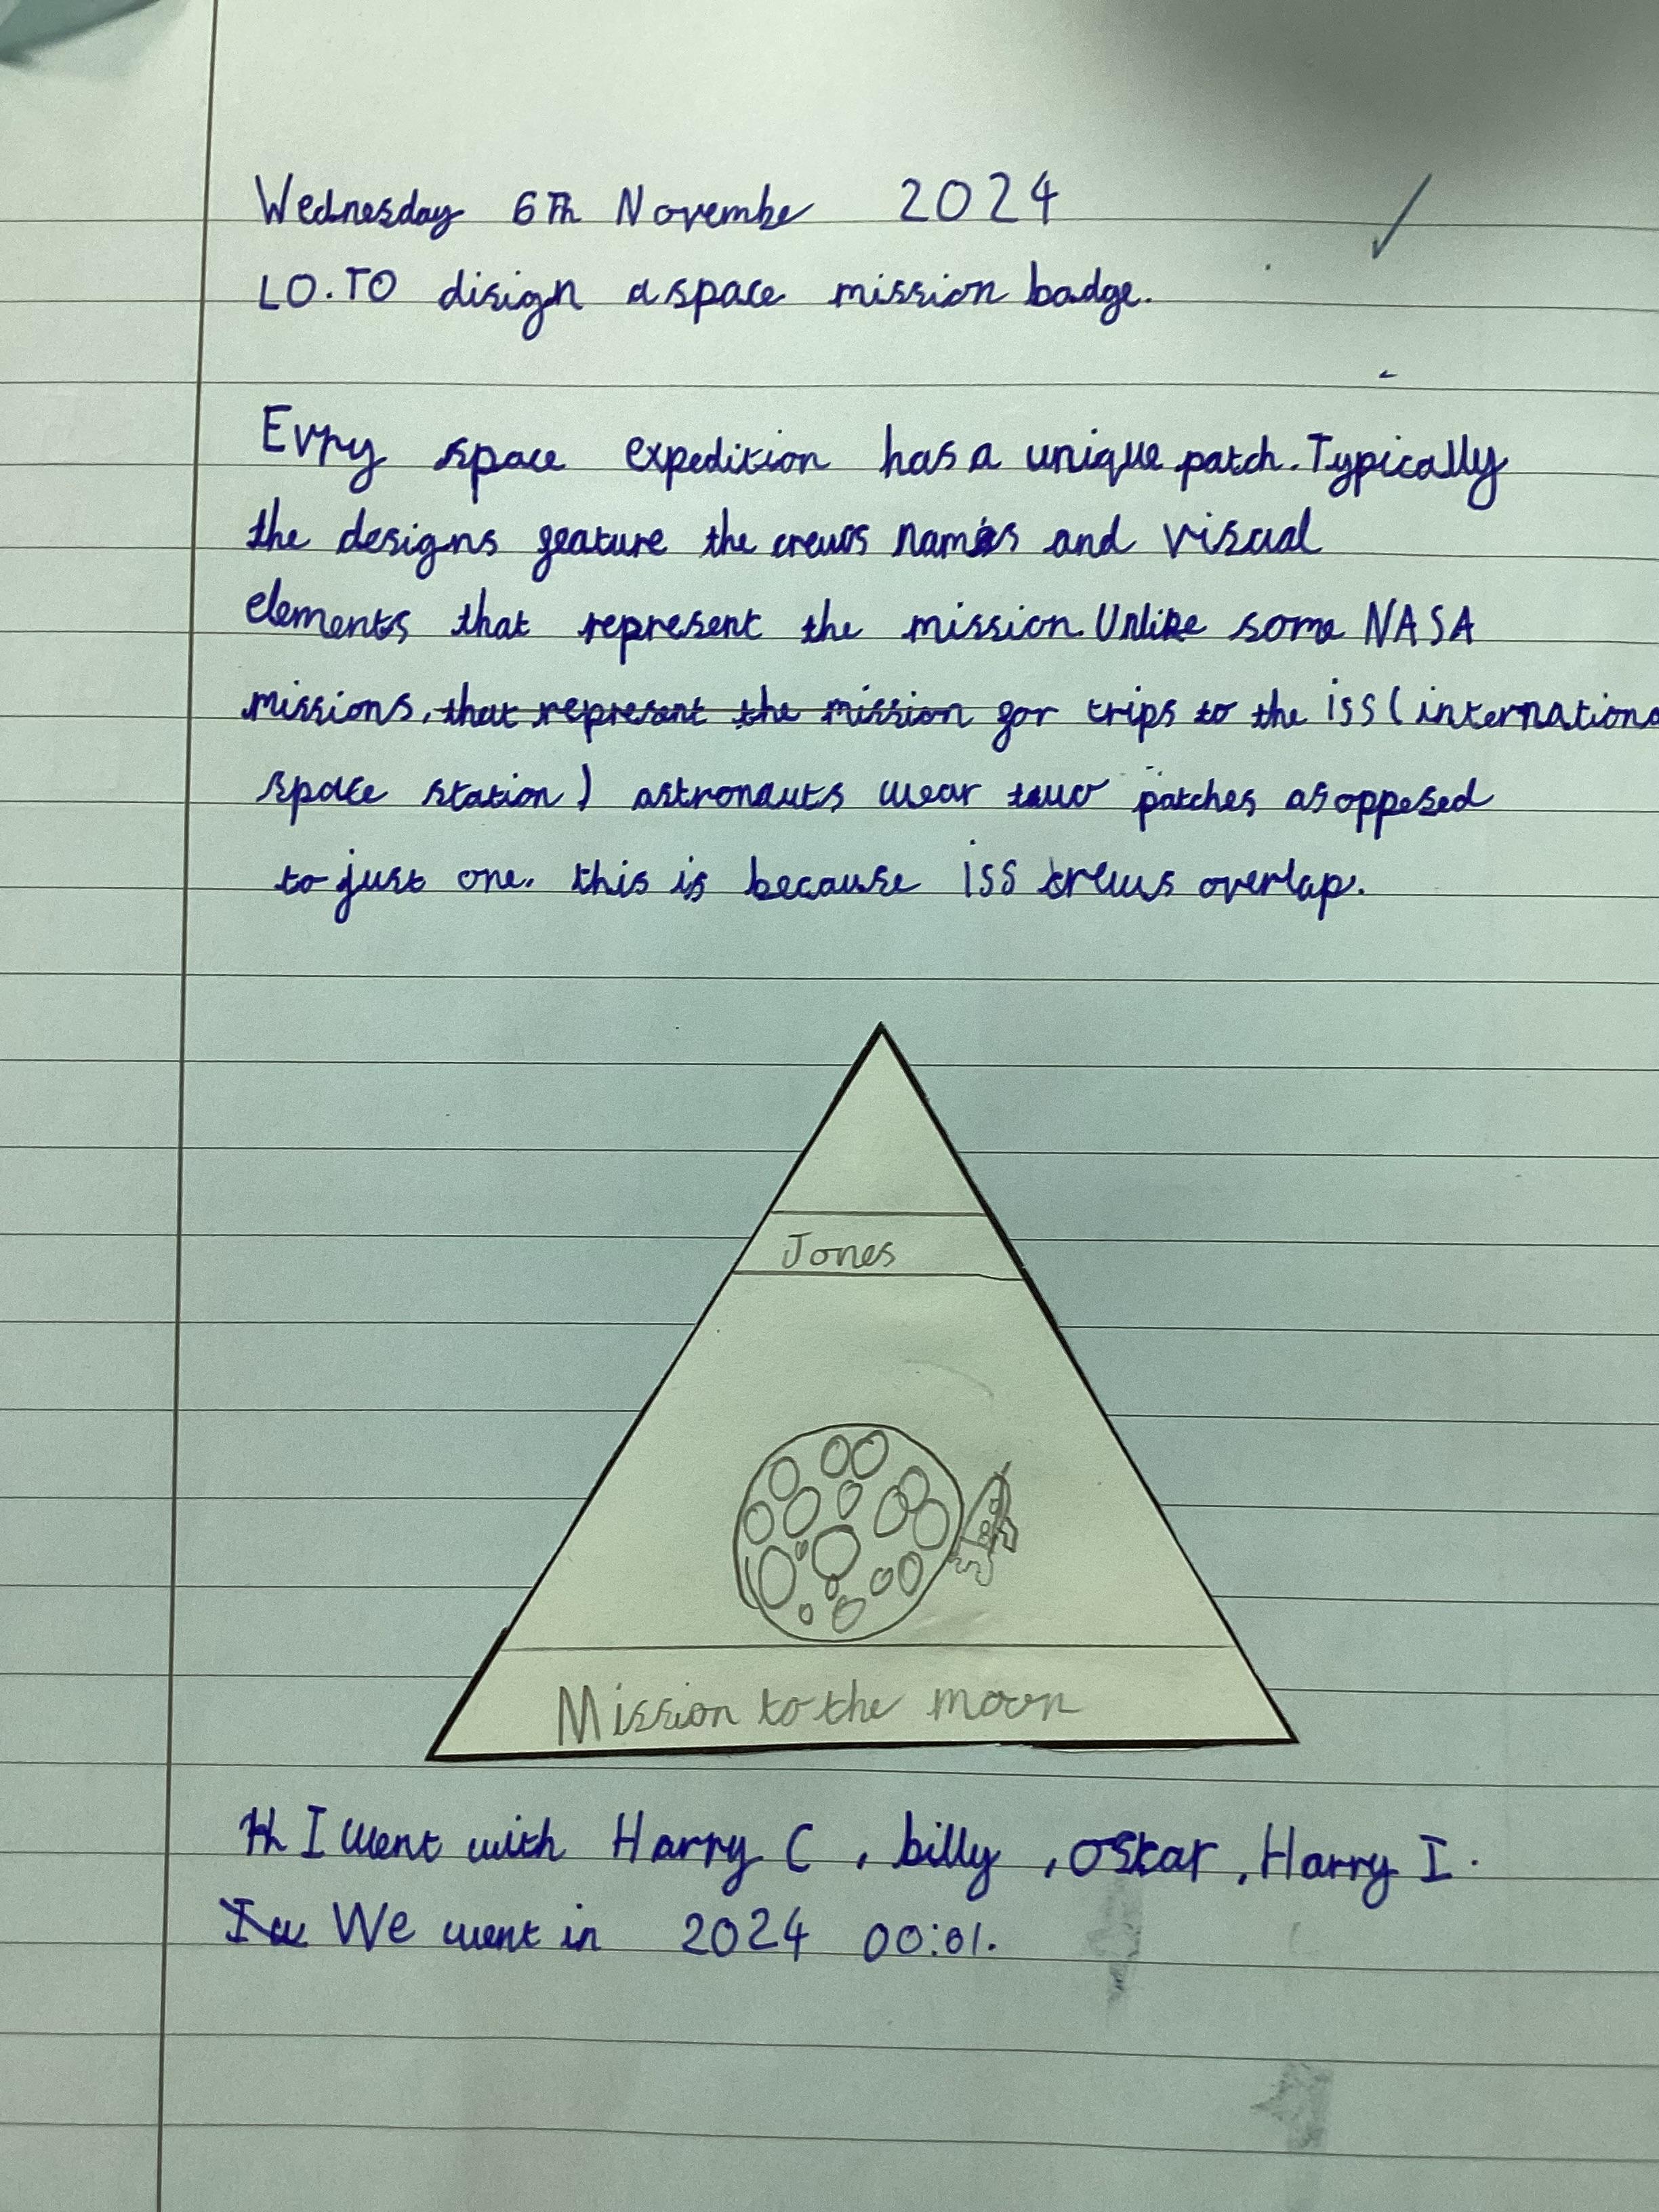 Wednesday 6Th Novembe 2024
LO.TO disign a space mission badge.
Evry space expedition has a unique patch. Typically
the designs feature the crews names and visual
elements that represent the mission. Unlike some NASA
missions, that represent the mission for trips to the iss (internationa
space station) astronauts wear two patches as opposed
to just one. this is because iss crews overlap.
Jones
Mission to the moon
H I went with Harry C, billy, oskar, Harry I.
I w We went in 2024 00:01.